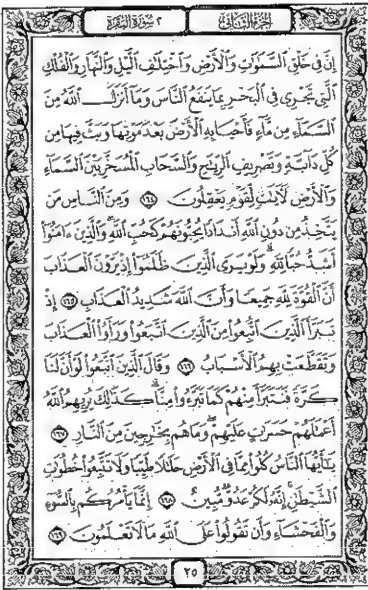 الجزء الثاني ٢ سورة البقرة
إِنَّ فِي خَلْقِ ٱلسَّمَٰوَٰتِ وَٱلْأَرْضِ وَٱخْتِلَٰفِ ٱلَّيْلِ وَٱلنَّهَارِ وَٱلْفُلْكِ
ٱلَّتِي تَجْرِي فِي ٱلْبَحْرِ بِمَا يَنفَعُ ٱلنَّاسَ وَمَآ أَنزَلَ ٱللَّهُ مِنَ
ٱلسَّمَآءِ مِن مَّآءٍ فَأَحْيَا بِهِ ٱلْأَرْضَ بَعْدَ مَوْتِهَا وَبَثَّ فِيهَا مِن
كُلِّ دَآبَّةٍ وَتَصْرِيفِ ٱلرِّيَٰحِ وَٱلسَّحَابِ ٱلْمُسَخَّرِ بَيْنَ ٱلسَّمَآءِ
وَٱلْأَرْضِ لَأٓيَٰتٍ لِّقَوْمٍ يَعْقِلُونَ ١٦٤ وَمِنَ ٱلنَّاسِ مَن
يَتَّخِذُ مِن دُونِ ٱللَّهِ أَندَادًا يُحِبُّونَهُمْ كَحُبِّ ٱللَّهِ ۖ وَٱلَّذِينَ ءَامَنُوٓا۟
أَشَدُّ حُبًّا لِّلَّهِ ۗ وَلَوْ يَرَى ٱلَّذِينَ ظَلَمُوٓا۟ إِذْ يَرَوْنَ ٱلْعَذَابَ
أَنَّ ٱلْقُوَّةَ لِلَّهِ جَمِيعًا وَأَنَّ ٱللَّهَ شَدِيدُ ٱلْعَذَابِ ١٦٥ إِذْ
تَبَرَّأَ ٱلَّذِينَ ٱتُّبِعُوا۟ مِنَ ٱلَّذِينَ ٱتَّبَعُوا۟ وَرَأَوُا۟ ٱلْعَذَابَ
وَتَقَطَّعَتْ بِهِمُ ٱلْأَسْبَابُ ١٦٦ وَقَالَ ٱلَّذِينَ ٱتَّبَعُوا۟ لَوْ أَنَّ لَنَا
كَرَّةً فَنَتَبَرَّأَ مِنْهُمْ كَمَا تَبَرَّءُوا۟ مِنَّا ۗ كَذَٰلِكَ يُرِيهِمُ ٱللَّهُ
أَعْمَٰلَهُمْ حَسَرَٰتٍ عَلَيْهِمْ ۖ وَمَا هُم بِخَٰرِجِينَ مِنَ ٱلنَّارِ ١٦٧
يَٰٓأَيُّهَا ٱلنَّاسُ كُلُوا۟ مِمَّا فِي ٱلْأَرْضِ حَلَٰلًا طَيِّبًا وَلَا تَتَّبِعُوا۟ خُطُوَٰتِ
ٱلشَّيْطَٰنِ ۚ إِنَّهُۥ لَكُمْ عَدُوٌّ مُّبِينٌ ١٦٨ إِنَّمَا يَأْمُرُكُم بِٱلسُّوٓءِ
وَٱلْفَحْشَآءِ وَأَن تَقُولُوا۟ عَلَى ٱللَّهِ مَا لَا تَعْلَمُونَ ١٦٩
٢٥